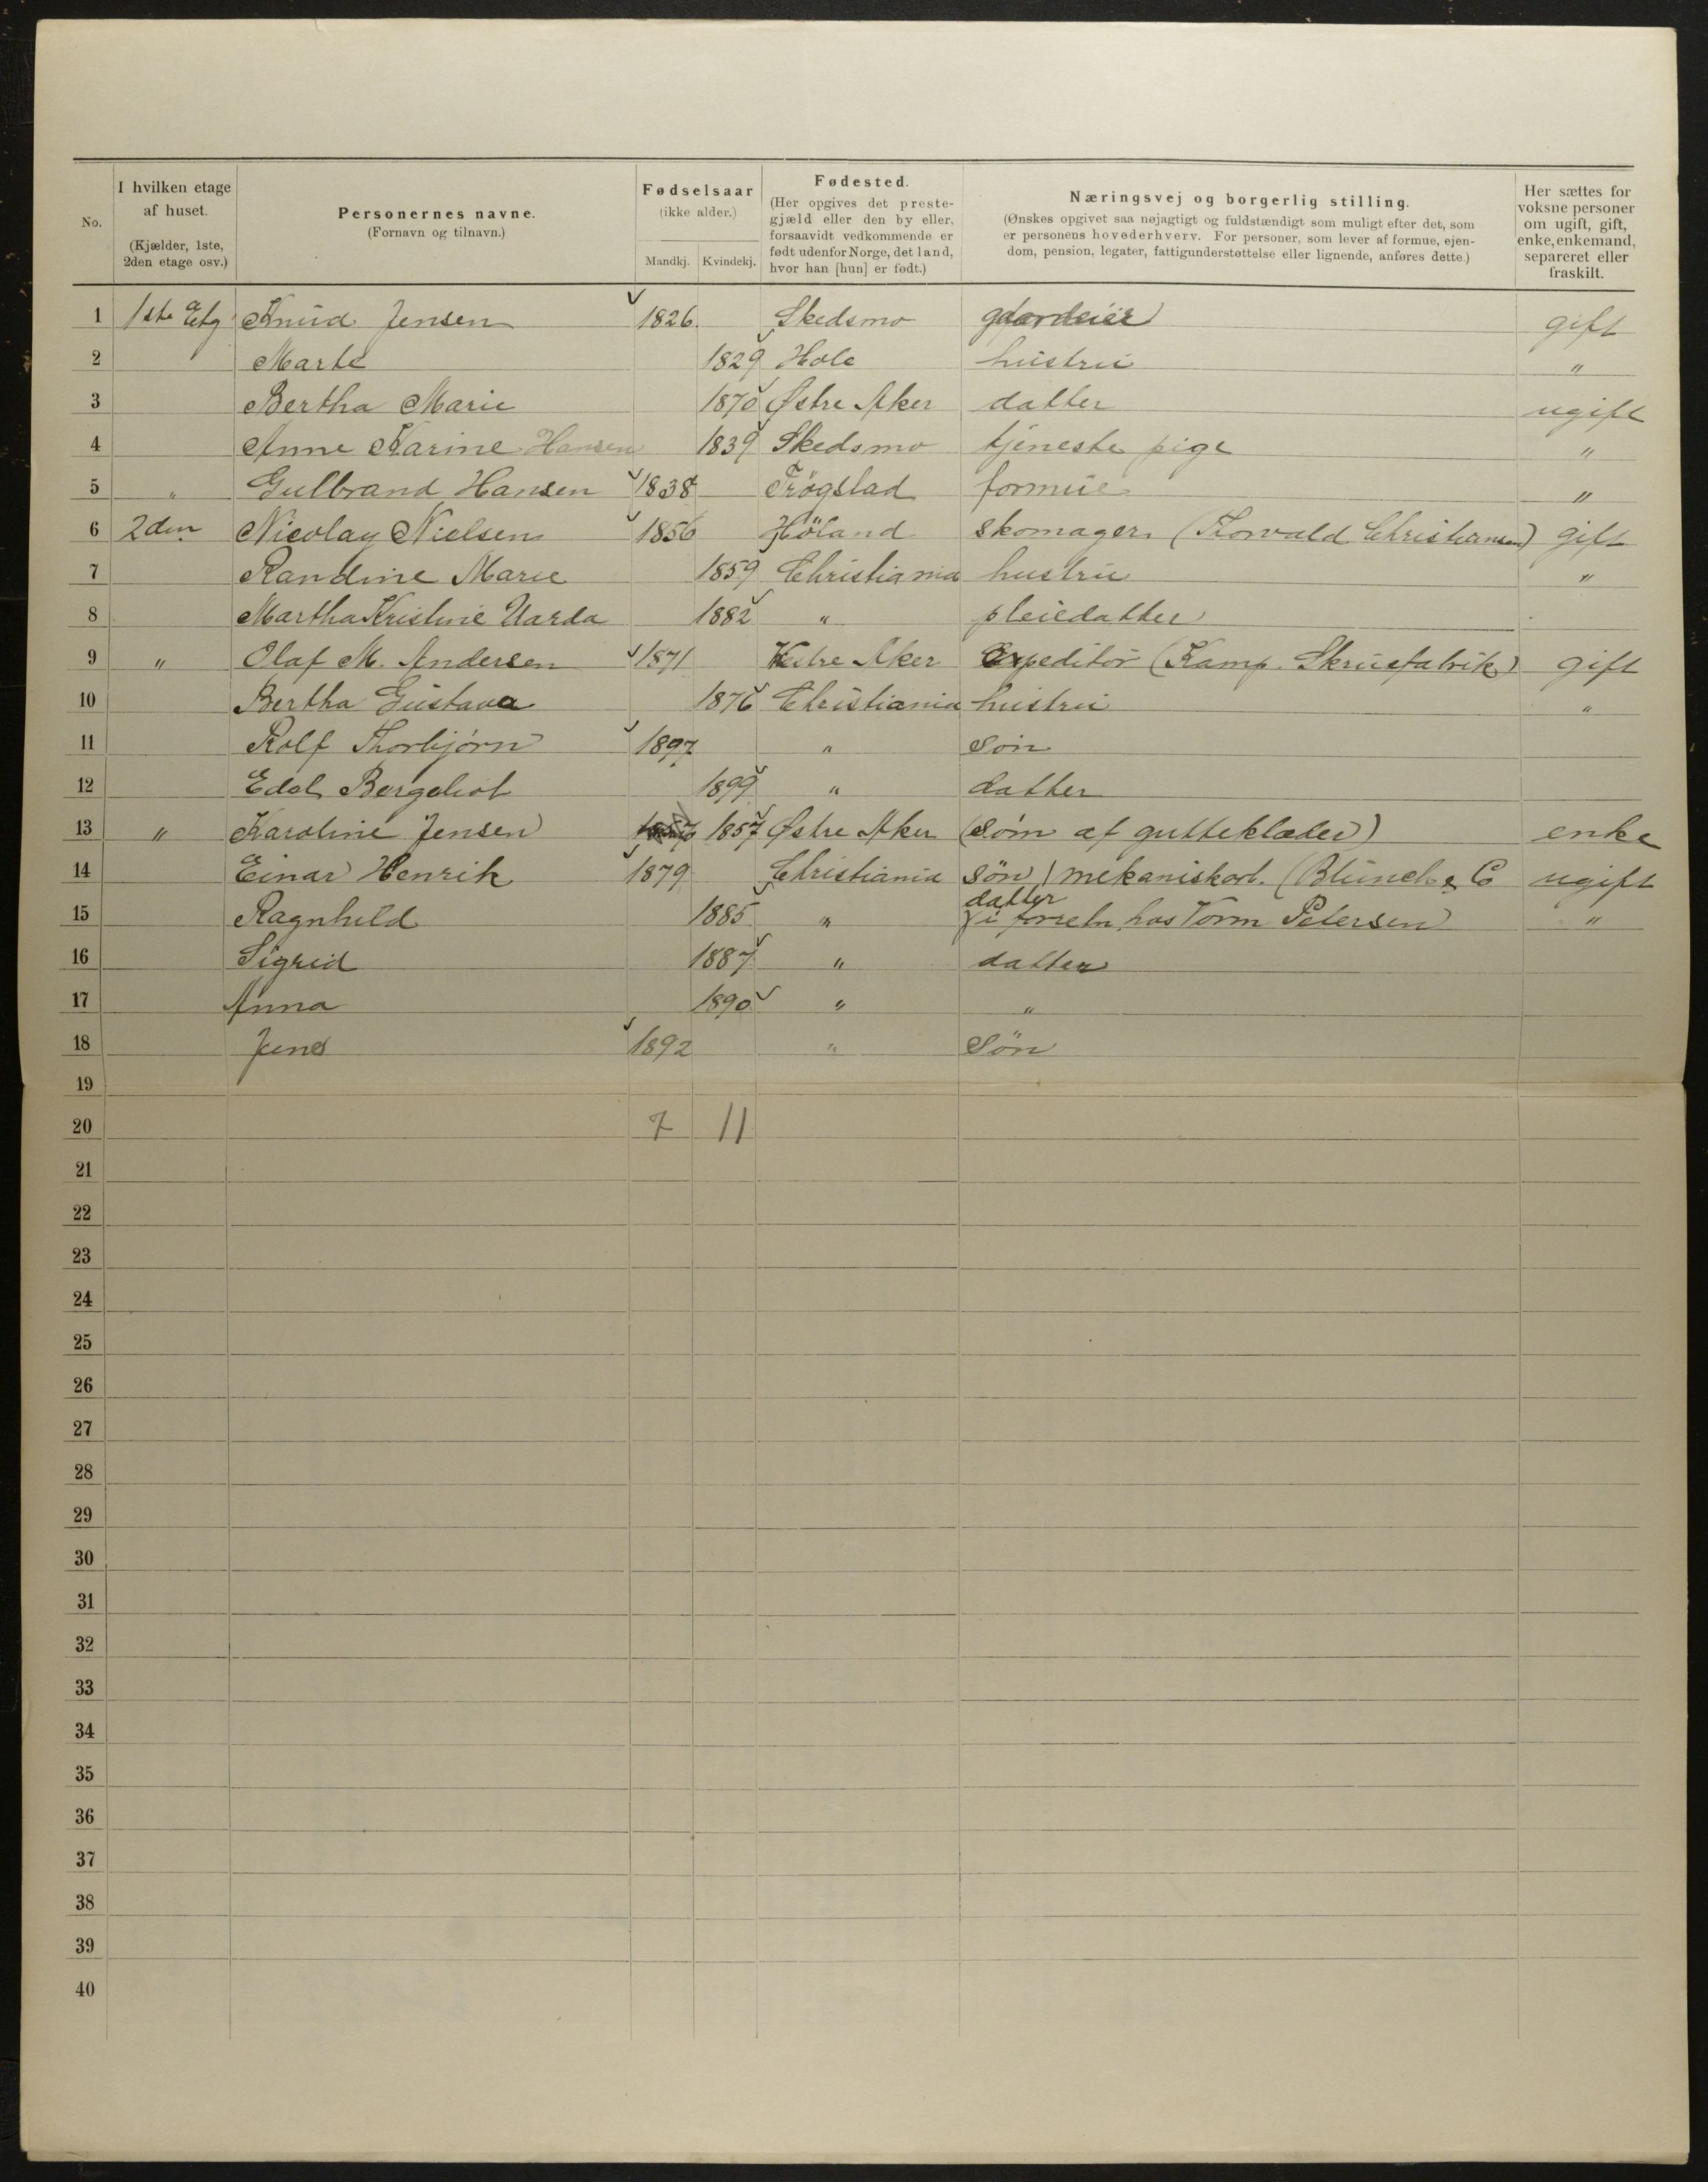 No. I hvilken etage af huset. (Kjælder, 1ste, 2den etage osv.) Personernes navne. (Fornavn og tilnavn.) Fødselsaar (ikke alder.) Mandkj. Kvindekj. Fødested. (Her opgives det prestegjæld eller den by eller, forsaavidt vedkommende er født udenfor Norge, det land, hvor han [hun] er født.) Næringsvej og borgerlig stilling. (Ønskes opgivet saa nøjagtigt og fuldstændigt som muligt efter det, som er personens hovederhverv. For personer, som lever af formue, ejendom, pension, legater, fattigunderstøttelse eller lignende, anføres dette.) Her sættes for voksne personer om ugift, gift, enke, enkemand, separeret eller fraskilt.
1 1ste Etg Knud Jensen 1826 Skedsmo gaardeier gift
2 Marte 1829 Hole hustru "
3 Bertha Marie 1870 Østre Aker datter ugift
4 Anne Karine Hansen 1839 Skedsmo tjeneste pige "
5 " Gulbrand Hansen 1838 Trøgstad formue "
6 2den Nicolay Nielsen 1856 Høland skomager (Thorvald Christiansen) gift
7 Randine Marie 1859 Christiania hustru "
8 Martha Kristine Uarda 1882 " pleiedatter
9 " Olaf M. Andersen 1871 Vestre Aker Expeditør (Kamp. Skruefabrik) gift
10 Bertha Gustava 1876 Christiania hustru "
11 Rolf Thorbjørn 1897 " søn
12 Edel Bergeliot 1899 " datter
13 " Karoline Jensen 1857 Østre Aker (Søm af gutteklæder) enke
14 Einar Henrik 1879 Christiania søn / mekaniskarb. (Blunck & C ugift
15 Ragnhild 1885 " datter i forretn hos Vorm Petersen) "
16 Sigrid 1887 " datter
17 Anna 1890 " "
18 Jens 1892 " Søn
19
20 7 11
21
22
23
24
25
26
27
28
29
30
31
32
33
34
35
36
37
38
39
40